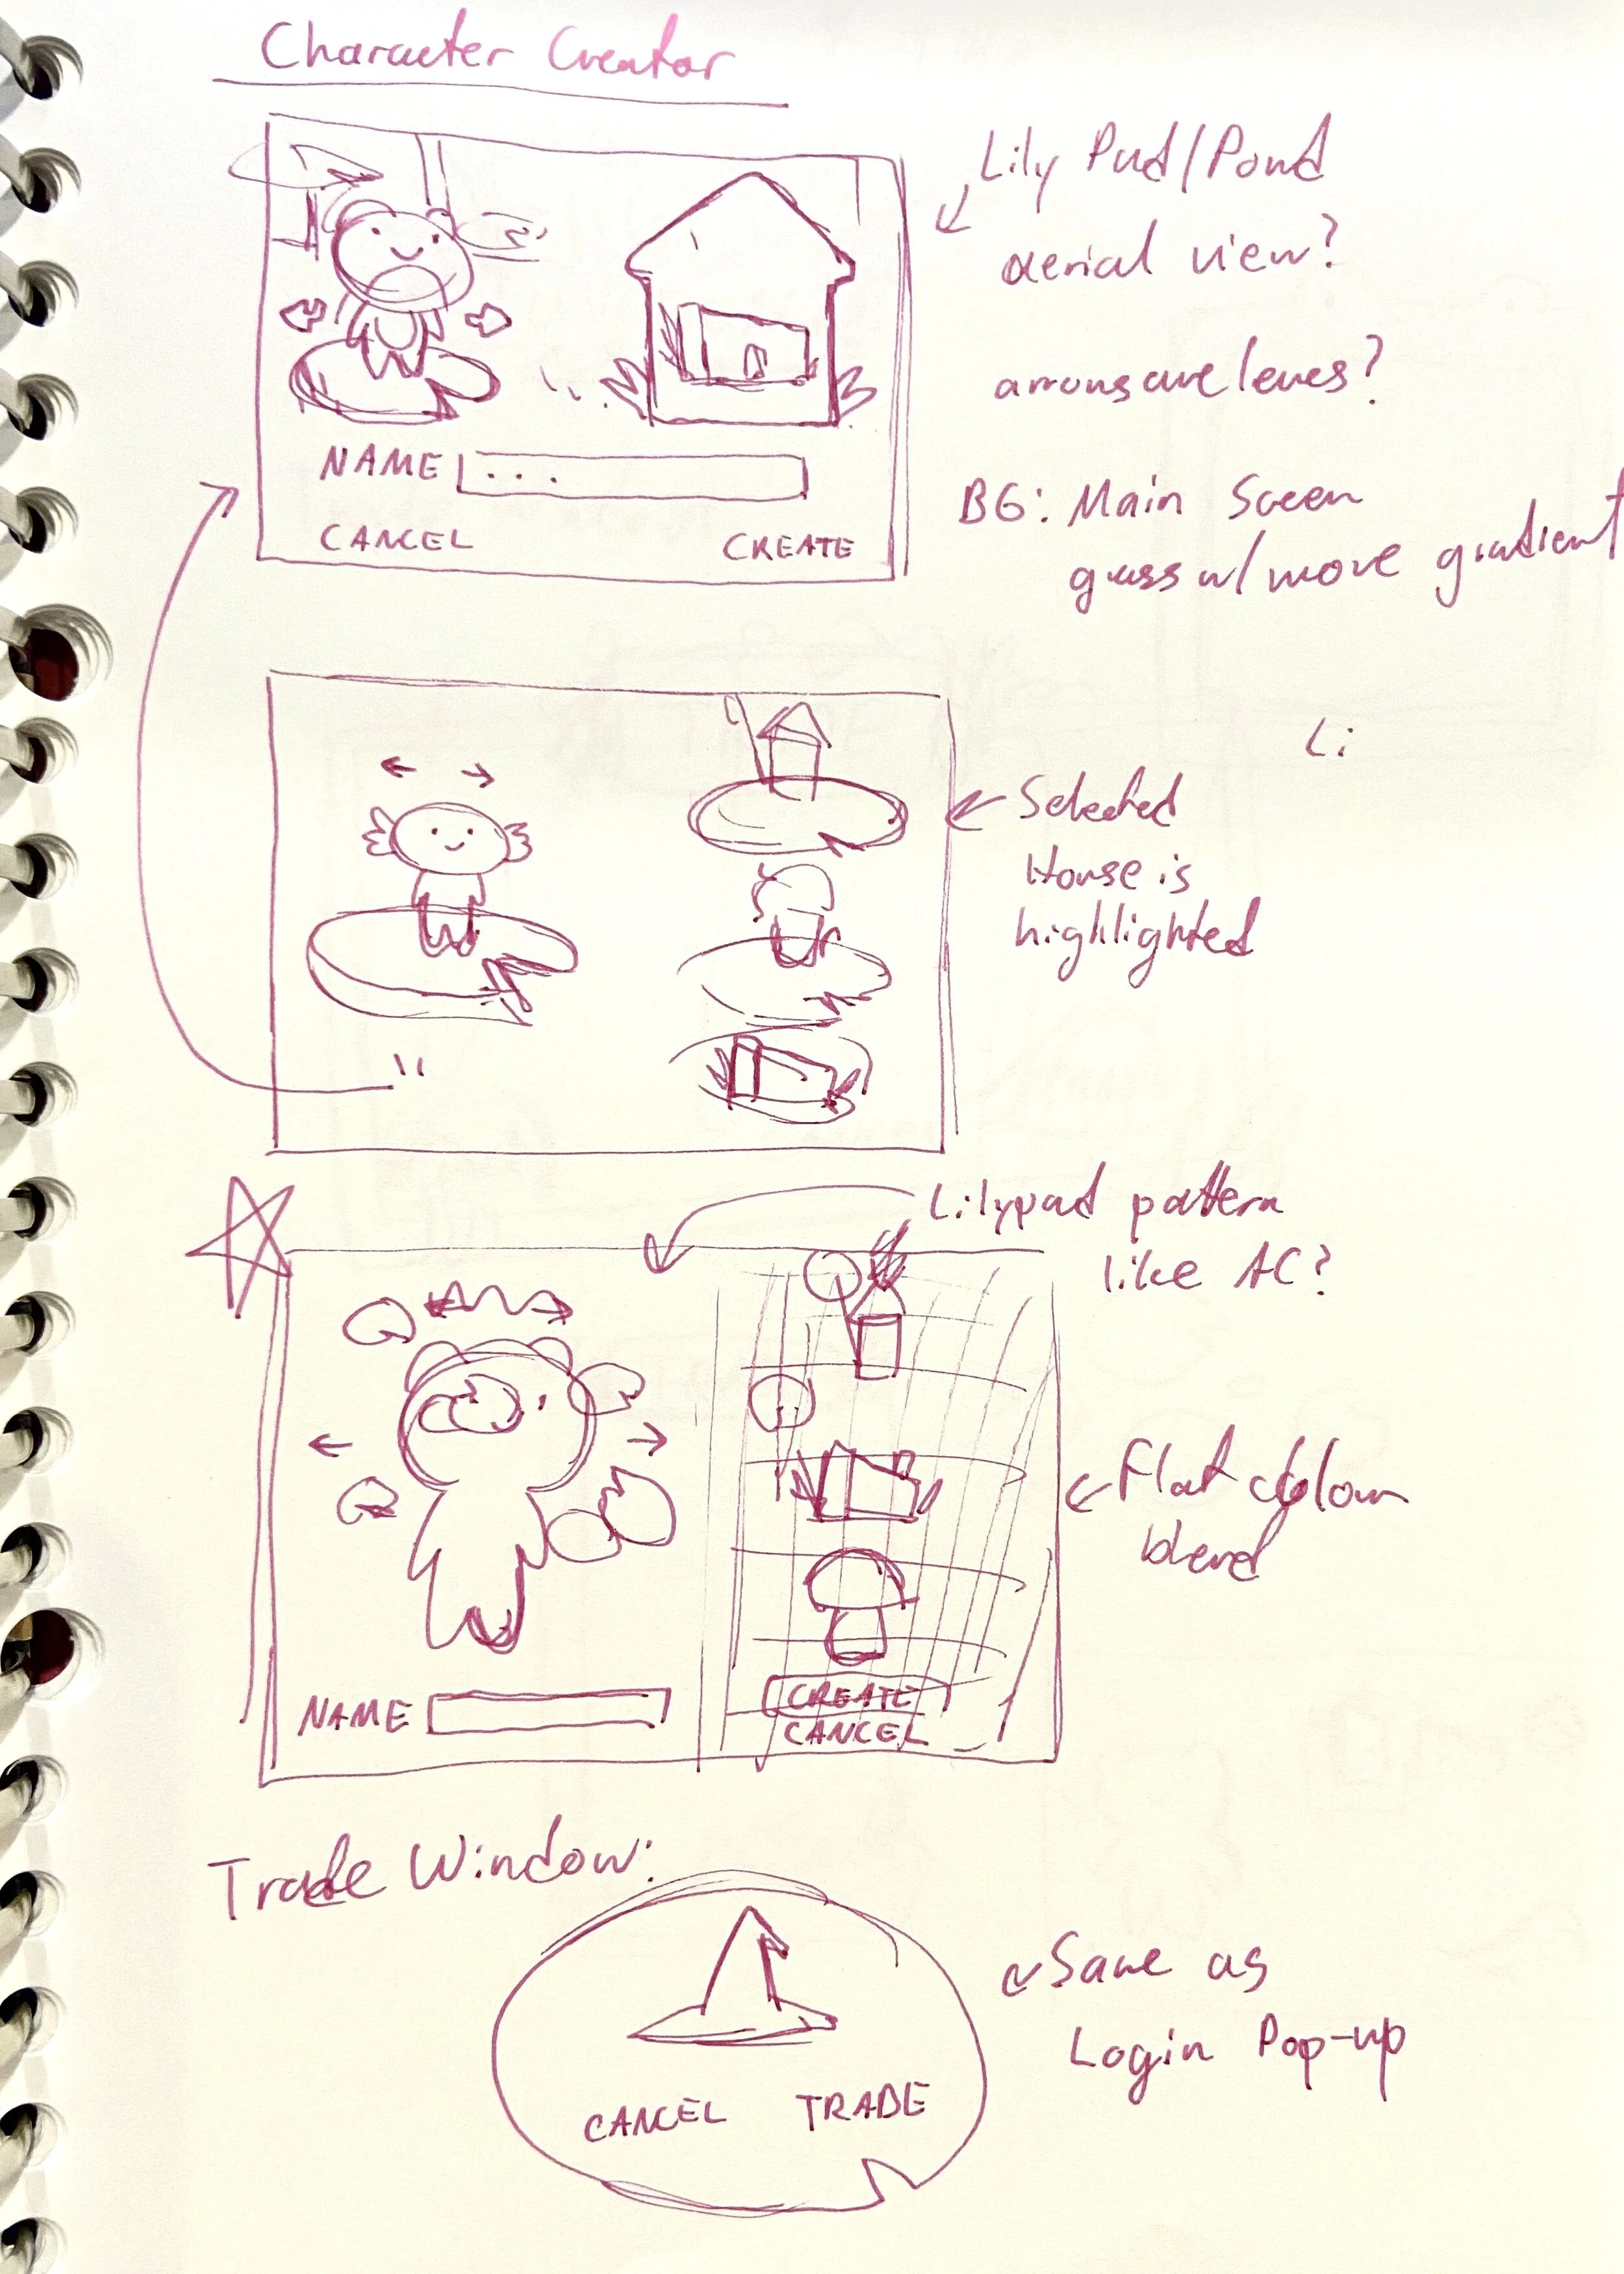 Character Creator
Lily Pad/Pond
aerial view?
arrows are leaves?
NAME ...
CANCEL CREATE
BG: Main Screen
grass w/ more gradient
Li
Selected
House is
highlighted
Lilypad pattern
like AC?
Flat colour
blend
NAME
CREATE
CANCEL
Trade Window:
Same as
Login Pop-up
CANCEL TRADE